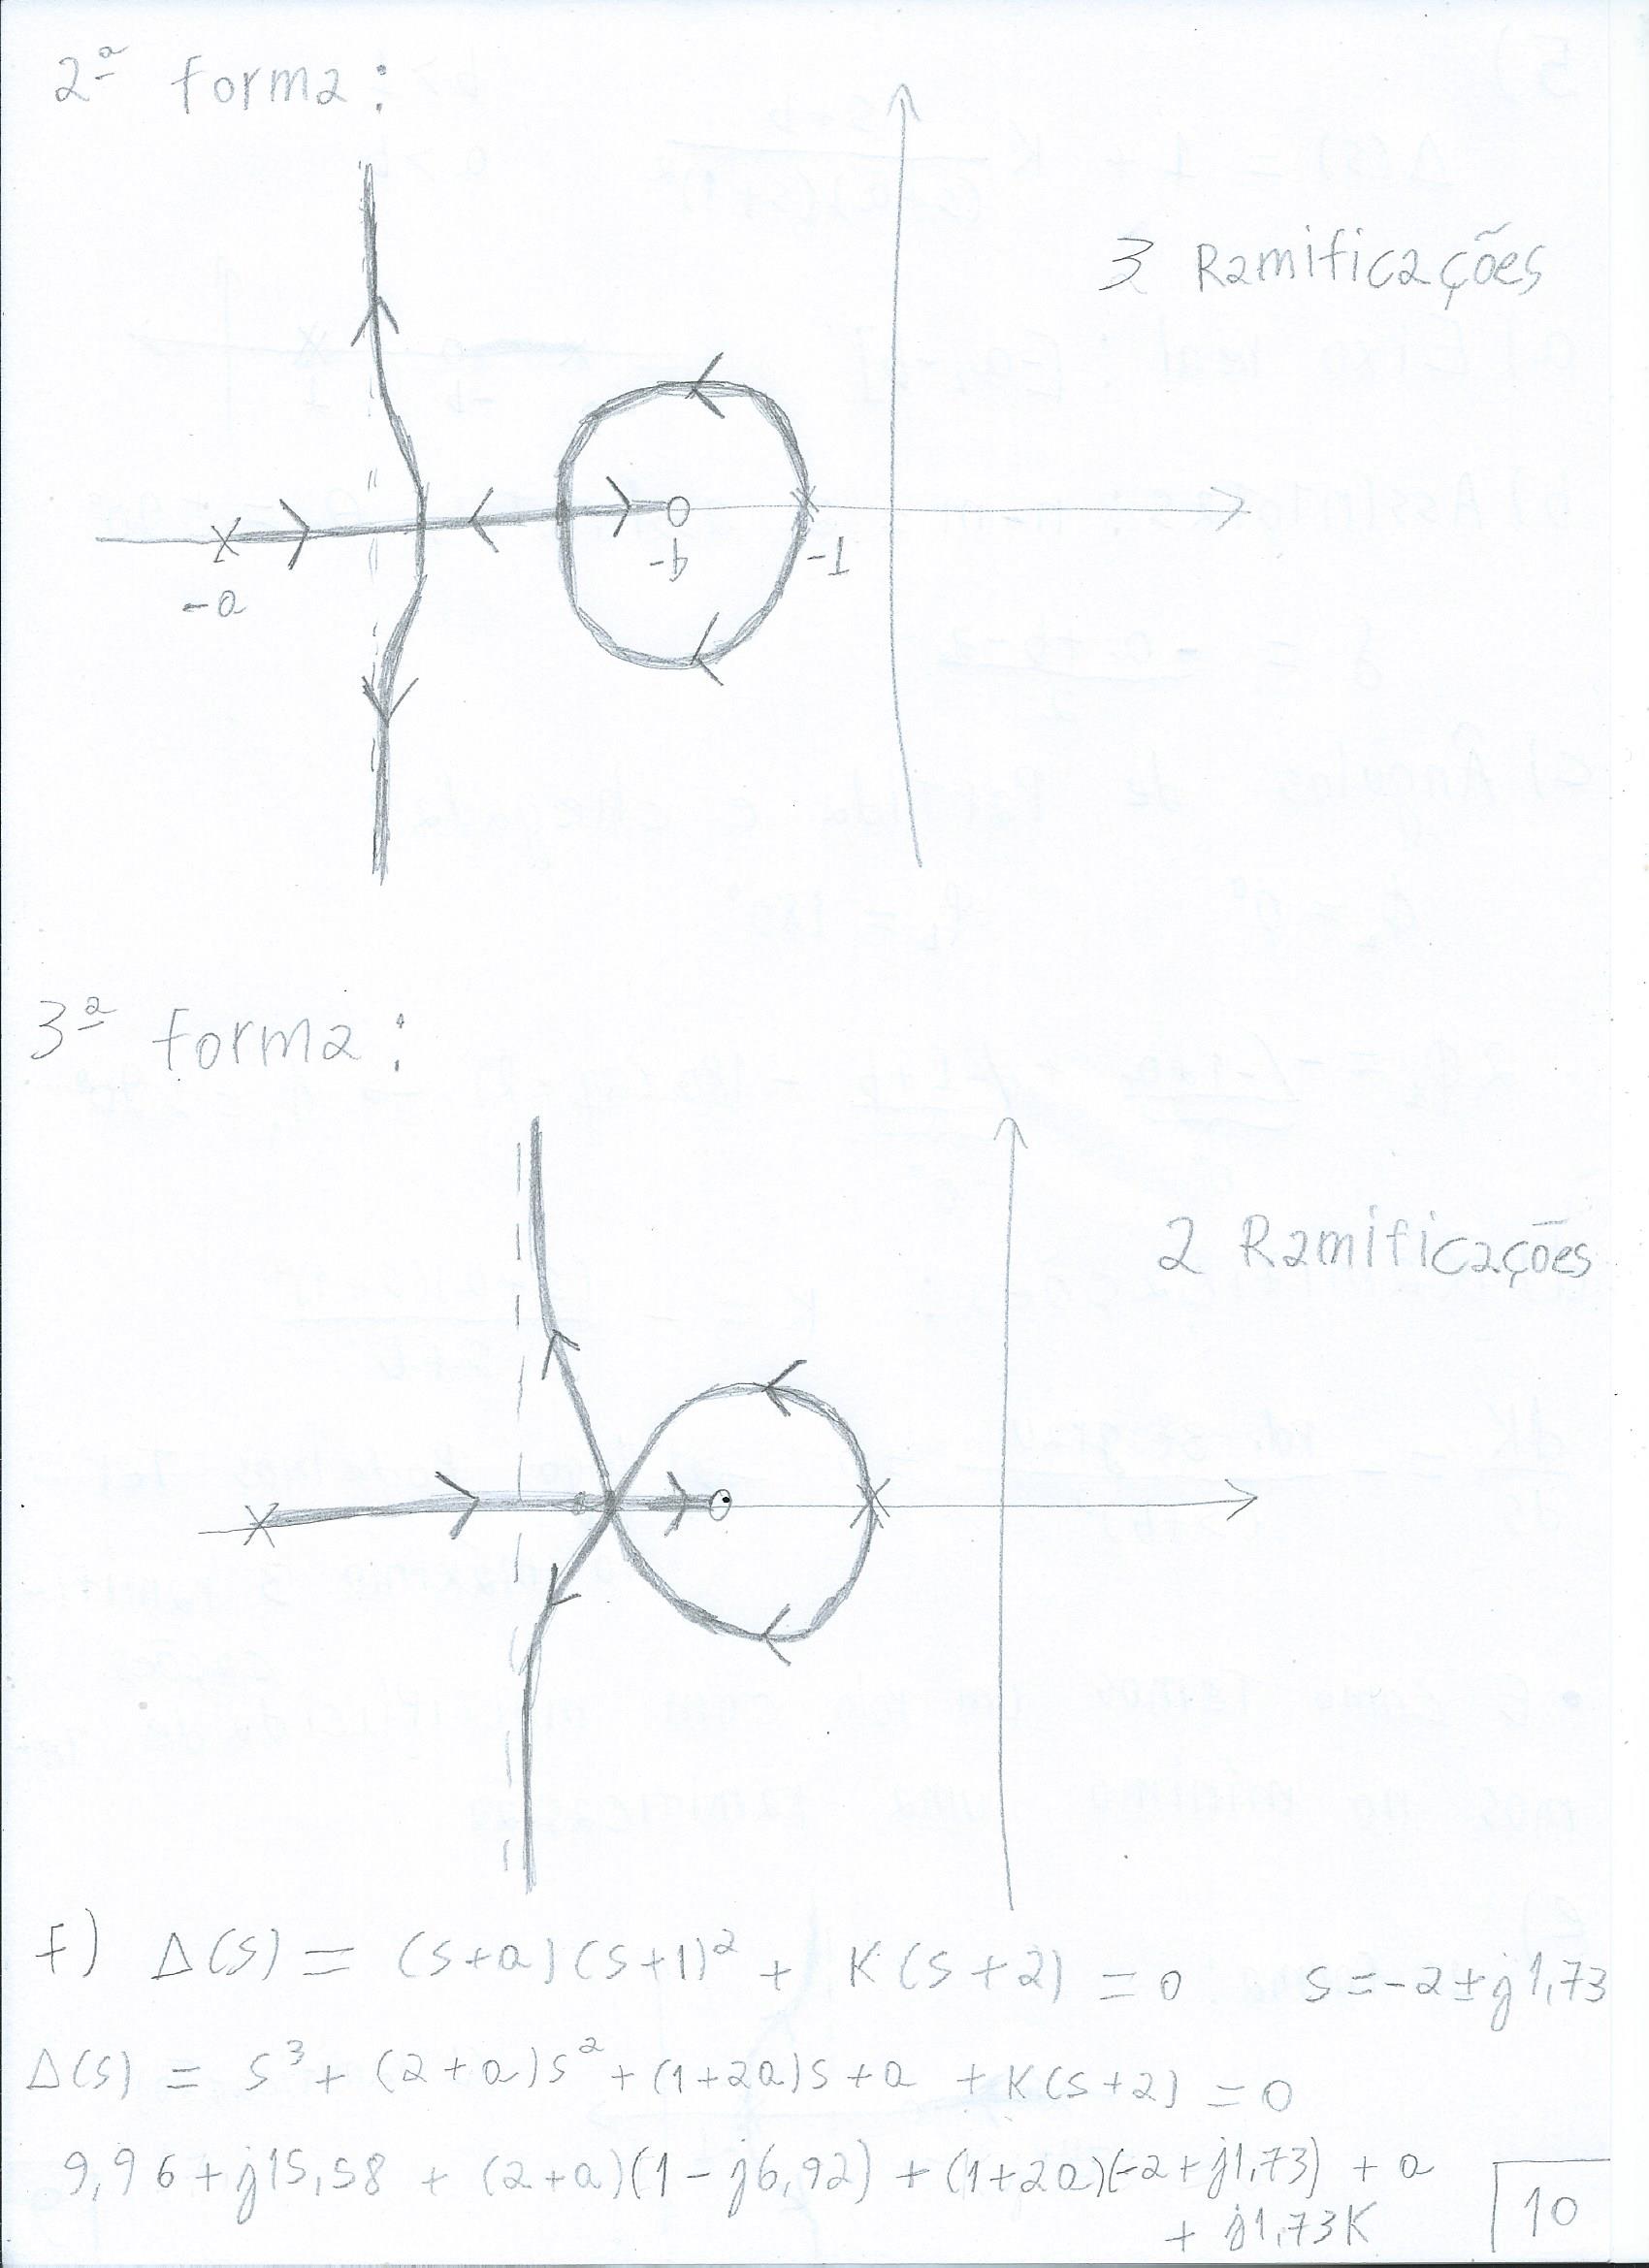 2ª forma:
3 Ramificações
-a
-b
-1
3ª forma:
2 Ramificações
f) Δ(s) = (s+a)(s+1)² + K(s+2) = 0 s = -2 ± j1,73
Δ(s) = s³ + (2+a)s² + (1+2a)s + a + K(s+2) = 0
9,96 + j15,58 + (2+a)(1 - j6,92) + (1+2a)(-2 + j1,73) + a
+ j1,73K
10